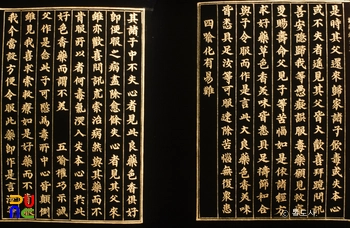 是時其父還來歸家諸子飲毒或失本心
或不失者遙見其父皆大歡喜拜跪問訊
善安隱歸我等愚癡誤服毒藥願見救療
更賜壽命父見子等苦惱如是依諸經方
求好藥草色香美味皆悉具足擣篩和合
與子令服而作是言此大良藥色香美味
皆悉具足汝等可服速除苦惱無復衆患
四喩化有易難
其諸子中不失心者見此良藥色香俱好
即便服之病盡除愈餘失心者見其父來
雖亦歡喜問訊求索治病然與其藥而不
肯服所以者何毒氣深入失本心故於此
好色香藥而謂不美 五喩權巧示滅
父作是念此子可愍爲毒所中心皆顚倒
雖見我喜求索救療如是好藥而不肯服
我今當設方便令服此藥即作是言